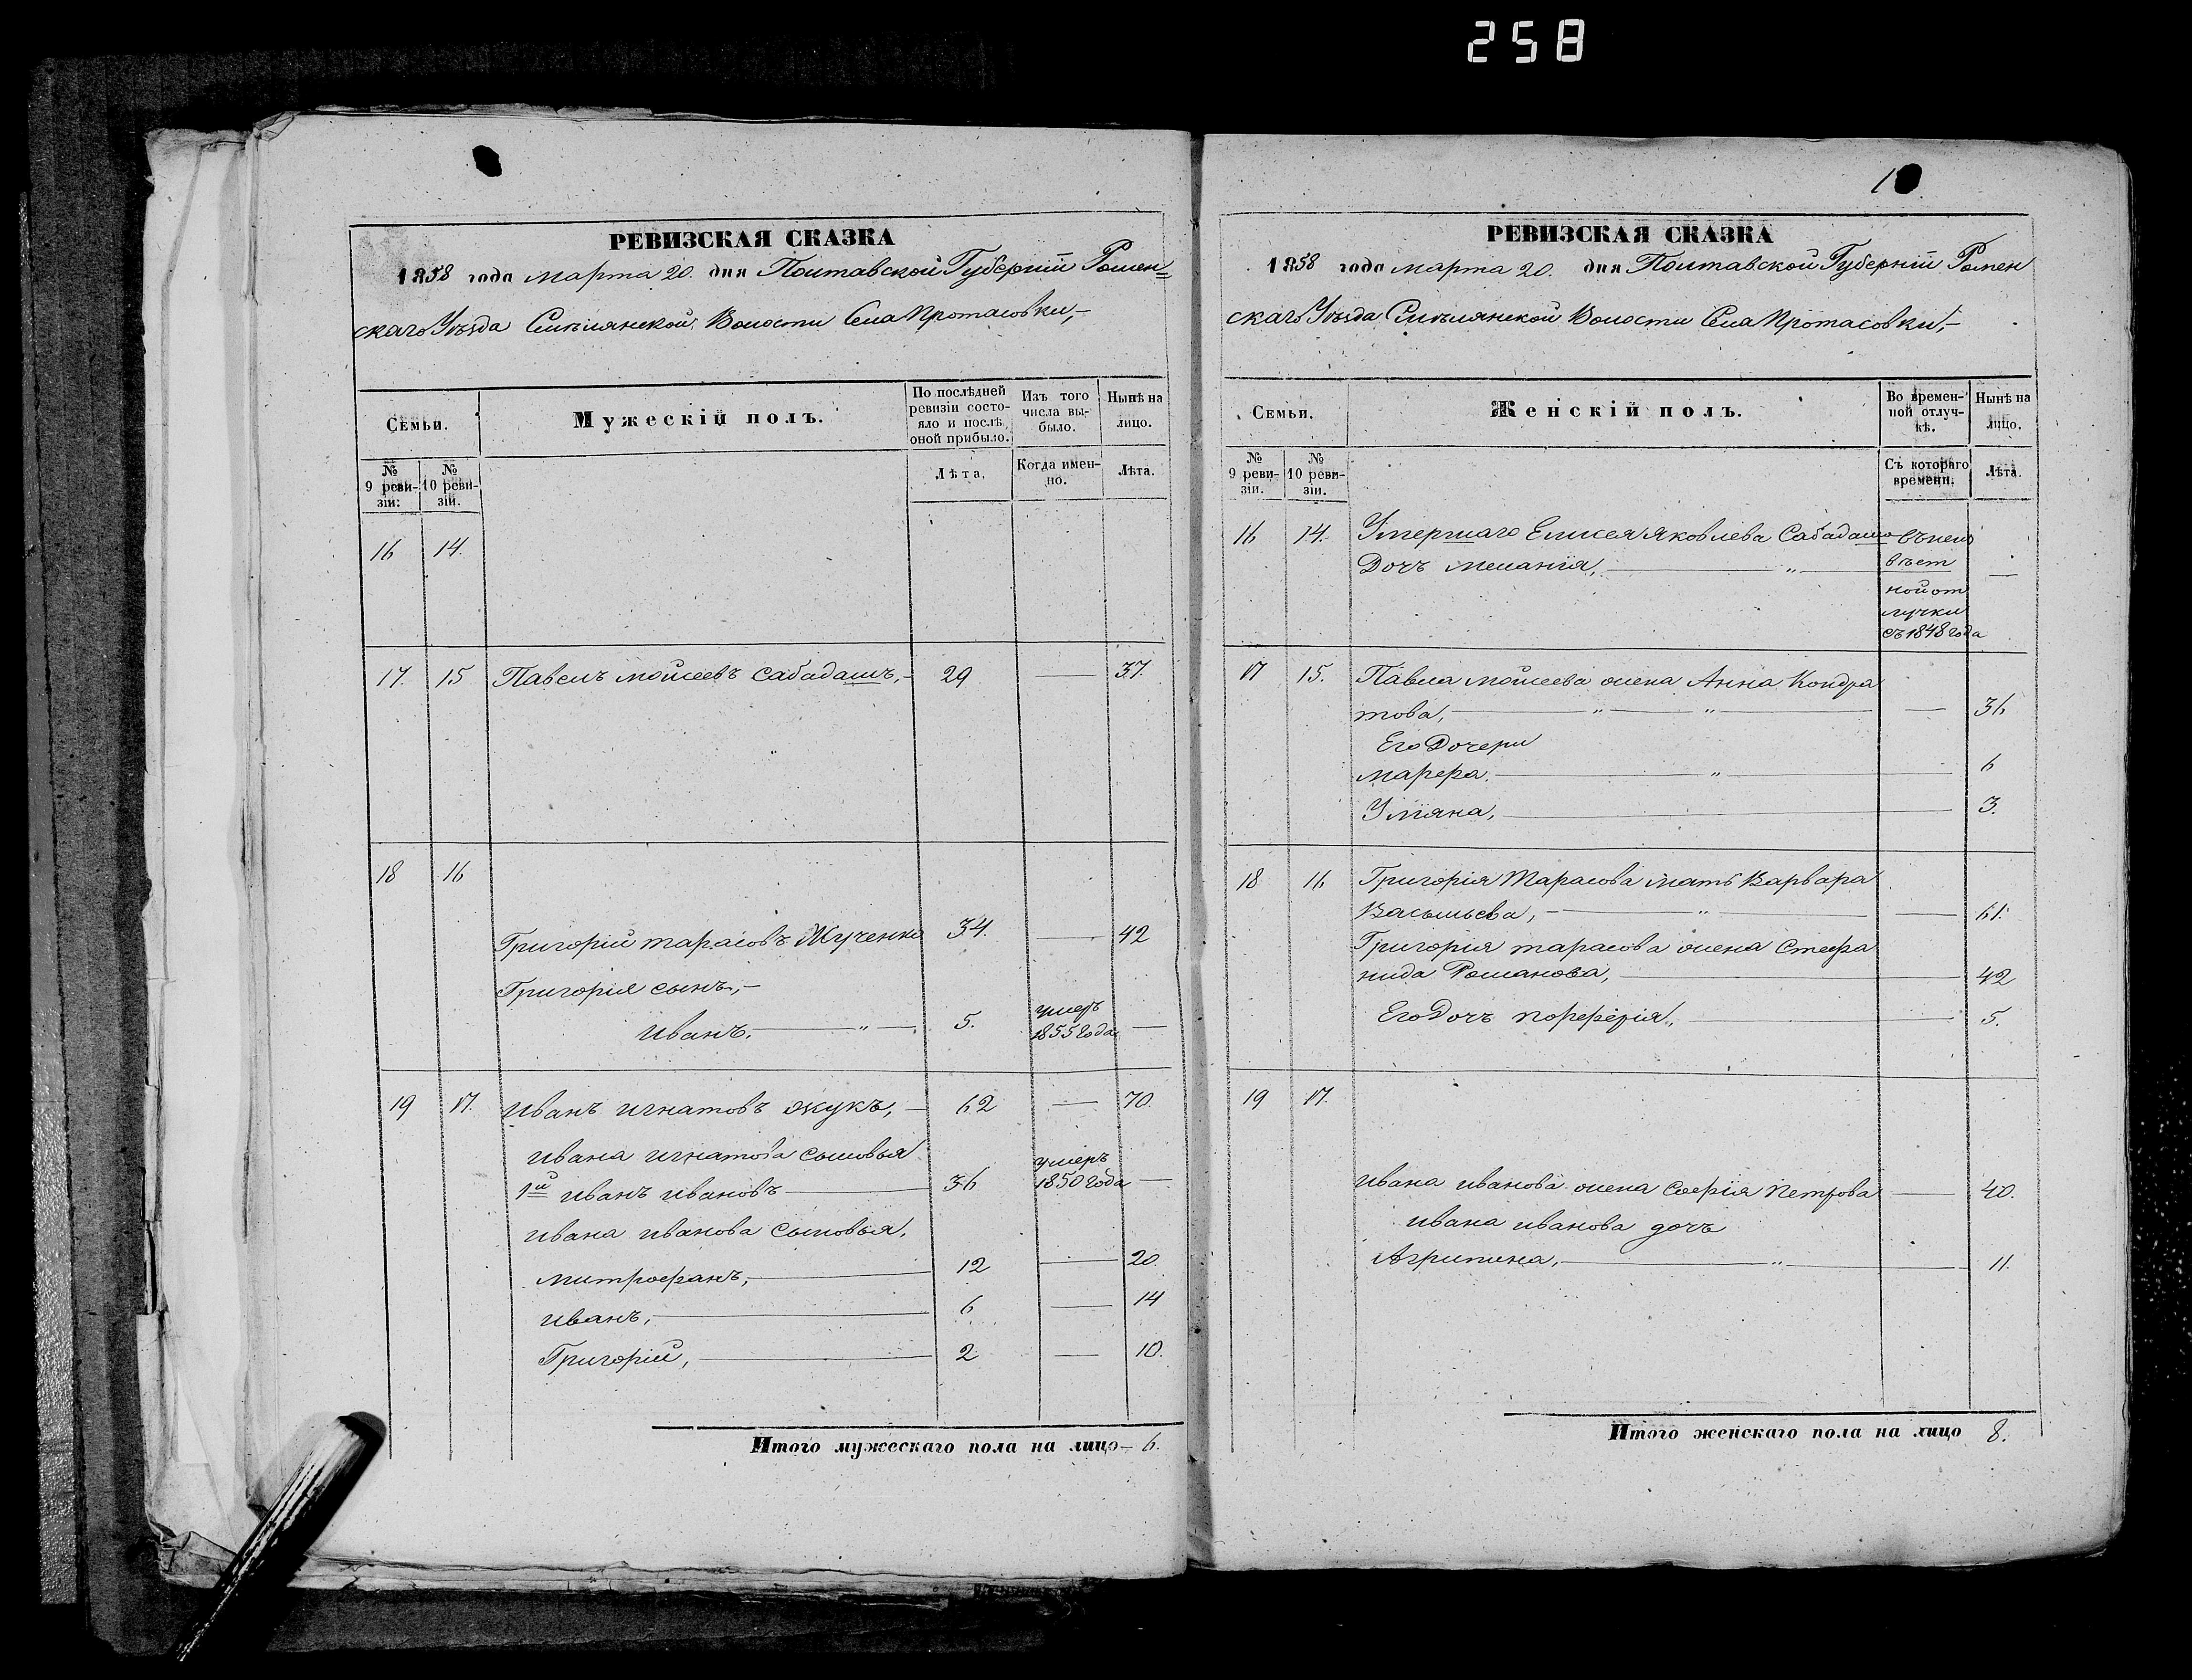 258
РЕВИЗСКАЯ СКАЗКА
1858 года марта 20. дня Полтавской Губерніи Ромен=
скаго Уѣзда Смѣлянской Волости Села Протасовки,-
Семьи.
Мужескій полъ.
По послѣдней ревизіи состояло и послѣ оной прибыло.
Изъ того числа выбыло.
Нынѣ на лицо.
№ 9 ревизіи.
№ 10 ревизіи.
Лѣта.
Когда именно.
Лѣта.
16 14.
17. 15 Павелъ Мойсеевъ Сабадашъ,- 29 — 37.
18 16
Григорій Тарасовъ Жученко 34. — 42
Григорія сынъ,-
Иванъ. — „ — 5. умеръ 1855 года —
19 17. Иванъ Игнатовъ Жукъ, — 62 — 70.
Ивана Игнатова сыновья
1й Иванъ Ивановъ — 36 умеръ 1850 года —
Ивана Иванова сыновья,
Митрофанъ, — 12 — 20
Иванъ, — 6 — 14
Григорій, — 2 — 10.
Итого мужескаго пола на лицо — 6.
РЕВИЗСКАЯ СКАЗКА
1858 года марта 20. дня Полтавской Губерніи Ромен
скаго Уѣзда Смѣлянской Волости Села Протасовки,-
Семьи.
Женскій полъ.
Во временной отлучкѣ.
Нынѣ на лицо.
№ 9 ревизіи.
№ 10 ревизіи.
Съ котораго времени.
Лѣта.
16 14. Умершаго Елисея Яковлева Сабадаша въ неиз
Дочъ Меланія, — „ — вѣст —
ной от
лучки
съ 1848 года
17 15. Павла Мойсеева жена Анна Кондра
това, — „ — „ — 36
Его Дочери
Марфа. — „ — 6
Уліяна, — 3.
18 16 Григорія Тарасова мать Варвара
Васильева, — „ — 61.
Григорія Тарасова жена Стефа
нида Романова, — 42
Его Дочъ Порфирія, — 5.
19 17.
Ивана Иванова жена Софія Петрова — 40.
Ивана Иванова дочъ
Агрипина, — „ — 11.
Итого женскаго пола на лицо 8.